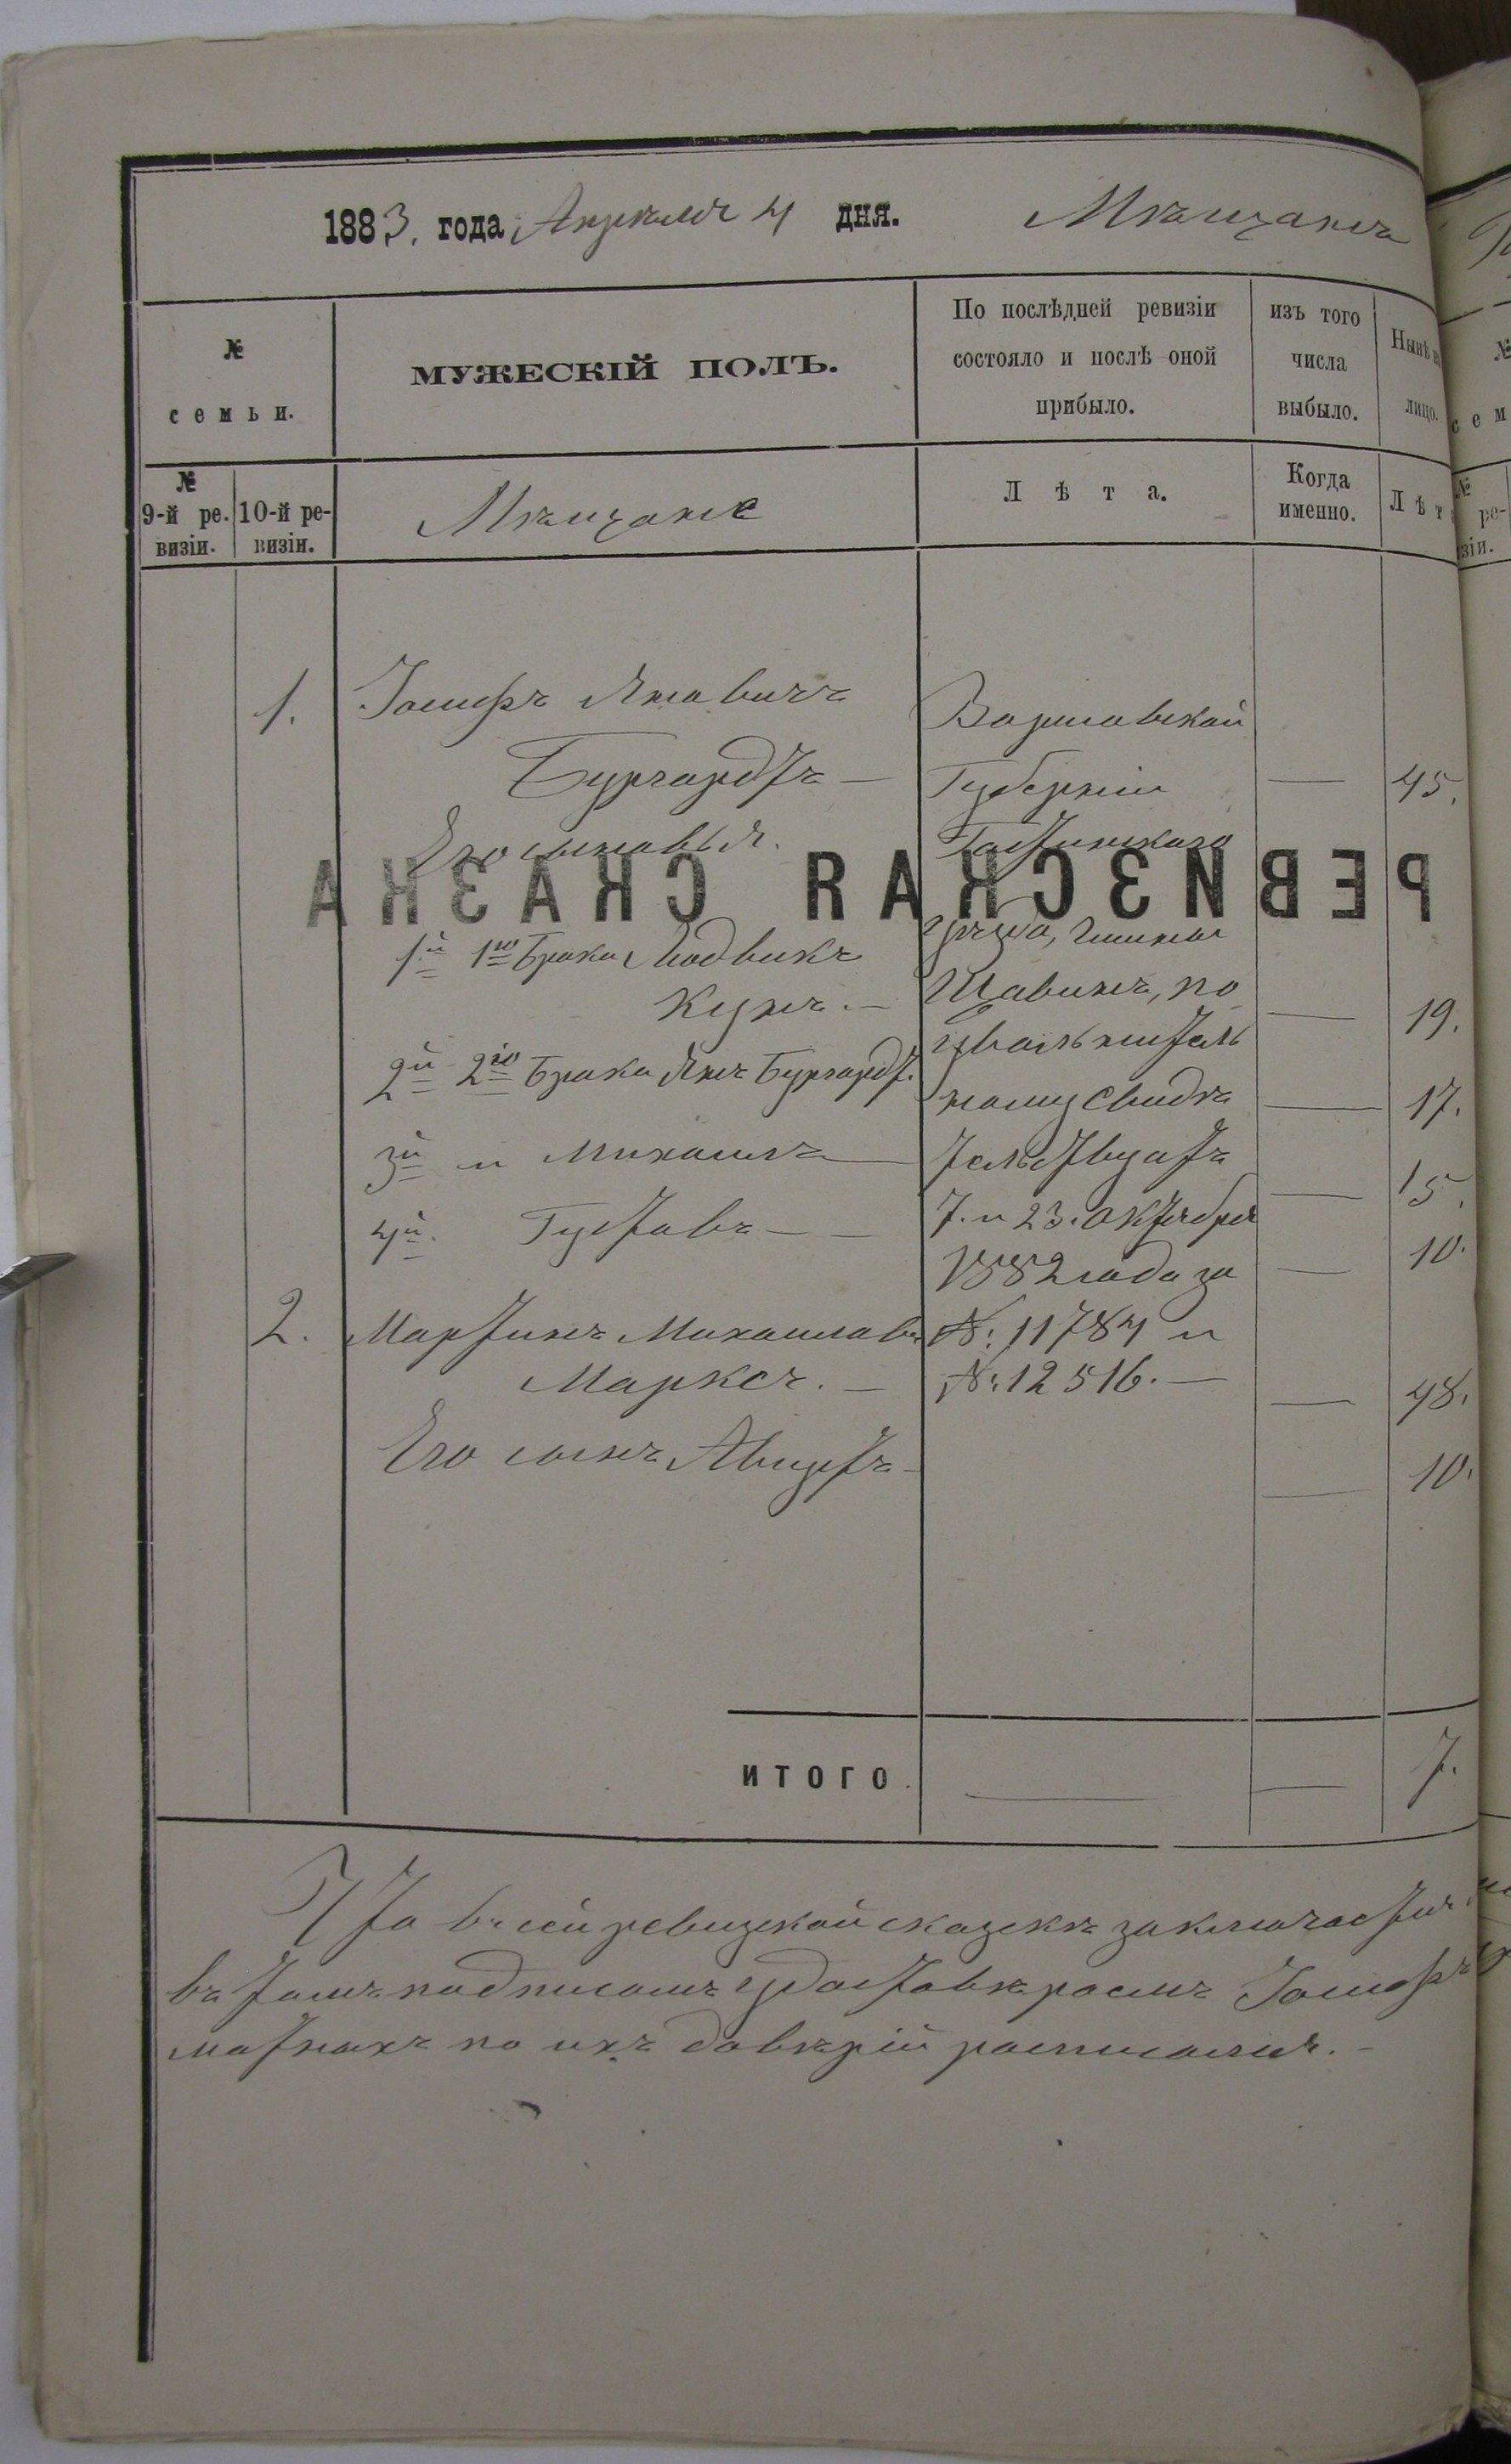 1883. года Апреля 4 дня. Мѣщанъ
№
семьи.
МУЖЕСКІЙ ПОЛЪ.
По послѣдней ревизіи
состояло и послѣ оной
прибыло.
изъ того
числа
выбыло.
Нынѣ
лицо.
№
9-й ре-
визіи.
10-й ре-
визіи.
Мѣщане
Лѣта.
Когда
именно.
Лѣт
1. Іосифъ Яковичъ Варшавской
Бургардтъ — Губерніи — 45.
Его сыновья. Гостинскаго
РЕВИЗСКАЯ СКАЗКА
1й 1го Брака Людвикъ уѣзда, гмины
Кунъ. — Щавинъ, по — 19.
2й 2го Брака Янъ Бургардт. увольнитель — 17.
ному свидѣ
3й и Михаилъ — тельствуатъ — 15.
4й. Густавъ — — 7. и 23. Октября — 10.
1882 года за
2. Мартинъ Михаиловъ №. 11784 и
Марксъ. — №. 12516. — — 48.
Его сынъ Августъ — — 10.
ИТОГО. — — 7.
Что въ сей ревизской сказкѣ заключается
въ томъ подписомъ удостовѣряемъ Іосифъ
мотныхъ по ихъ довѣрій росписался. —